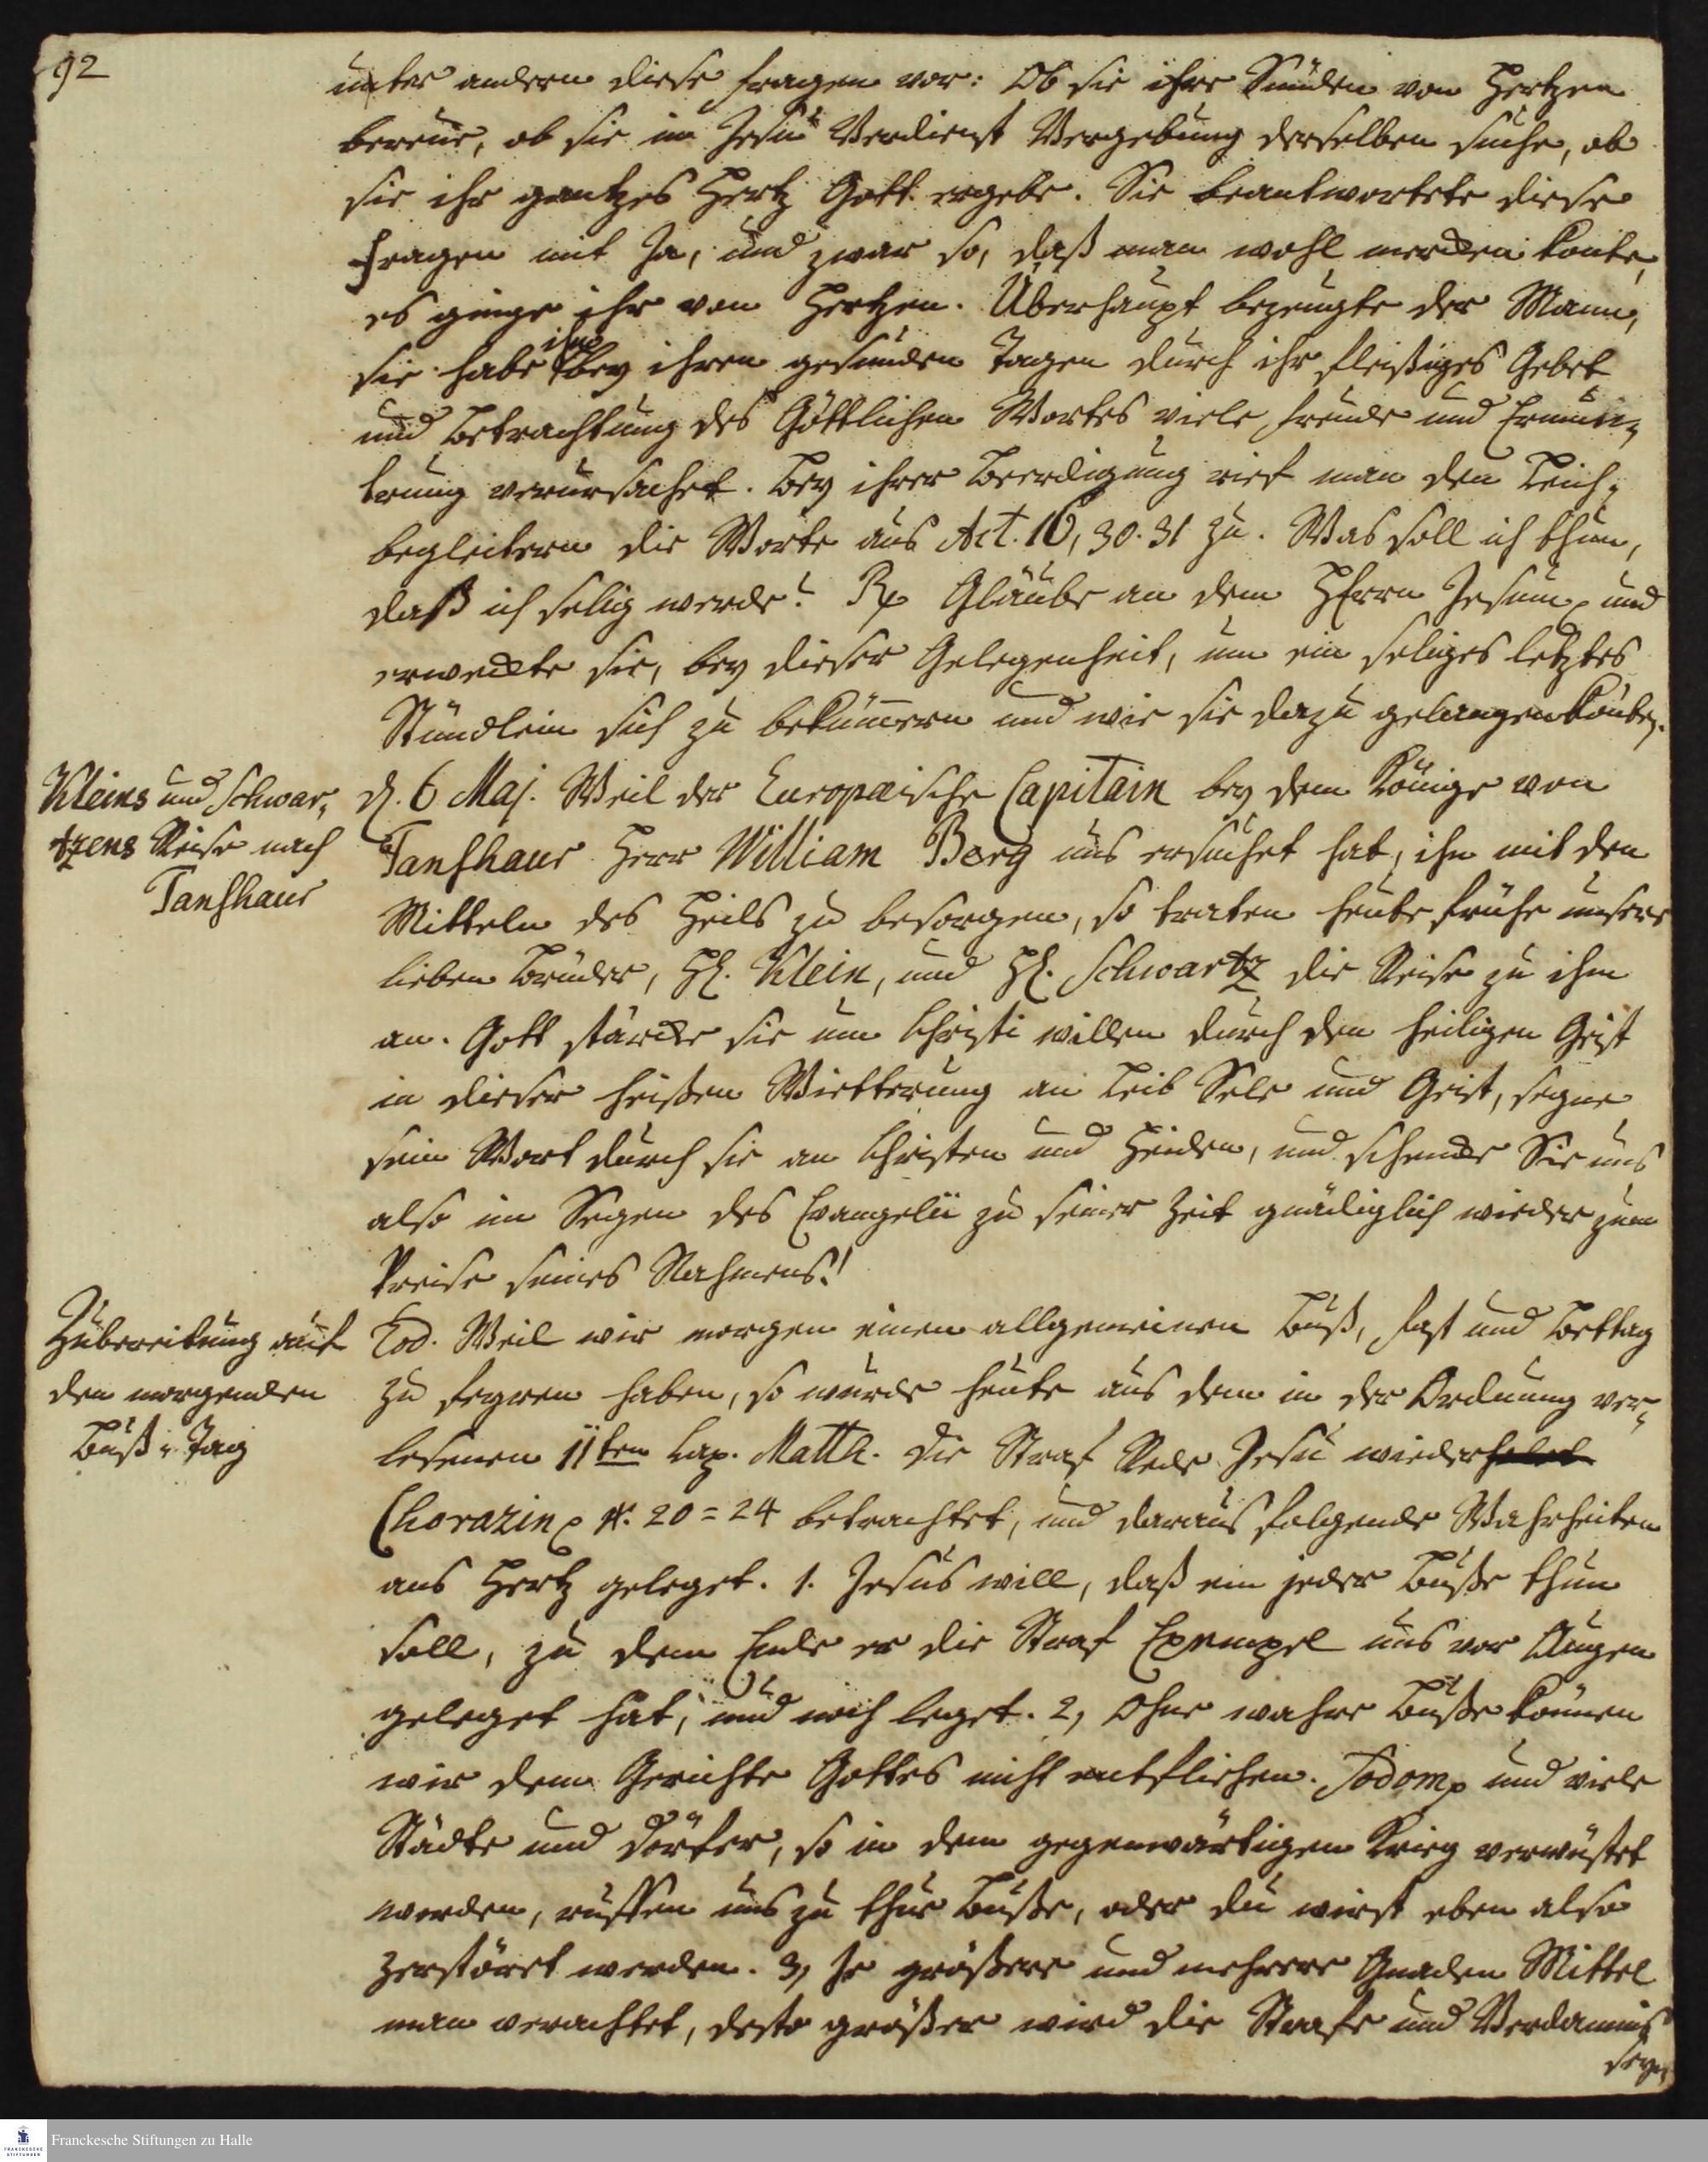 92
unter andern diese Fragen vor: Ob sie ihre Sünden von Hertzen
bereue, ob sie in Jesu Verdienst Vergebung derselben suche, ob
sie ihr gantzes Hertz Gott ergebe. Sie beantwortete diese
Fragen mit Ja, und zwar so, daß man wohl mercken konte,
es ginge ihr von Hertzen. Überhaupt bezeugte der Mann,
sie habe ihm bey ihren gesunden Tagen durch ihr fleißiges Gebet
und Betrachtung des Göttlichen Wortes viele Freude und Ermun-
terung verursachet. Bey ihrer Beerdigung rief man den Leich-
begleitern die Worte aus Act. 16, 30. 31 zu. Was soll ich thun,
daß ich selig werde? Rx Gläube an den HErrn Jesum p und
erweckte sie, bey dieser Gelegenheit, um ein seliges letztes
Stündlein sich zu bekümern und wie sie dazu gelangen könten.
Kleins und Schwar-
tzens Reise nach
Tanshaur
d. 6 Maj. Weil der Europæische Capitain bey dem Könige von
Tanshaur Herr William Berg uns ersuchet hat, ihn mit den
Mitteln des Heils zu besorgen, so traten heute frühe unsere
lieben Brüder, H. Klein, und H. Schwartz die Reise zu ihm
an. Gott stärcke sie um Christi willen durch den heiligen Geist
in dieser heißen Witterung an Leib Sele und Geist, segne
sein Wort durch sie an Christen und Heiden, und schencke Sie uns
also im Segen des Evangelii zu seiner Zeit gnädiglich wieder zum
Preise seines Nahmens!
Zubereitung auf
den morgenden
Buß-Tag
Eod. Weil wir morgen einen allgemeinen Buß, Fast und Bettag
zu feyren haben, so wurde heute aus dem in der Ordnung ver-
lesenen 11ten Cap. Matth. die Straf Rede Jesu wieder
Chorazin p v. 20=24 betrachtet, und daraus folgende Wahrheiten
ans Hertz geleget. 1. Jesus will, daß ein jeder Buße thun
soll, zu dem Ende er die Straf Exempel uns vor Augen
geleget hat, und noch leget. 2, Ohne wahre Buße können
wir dem Gerichte Gottes nicht entfliehen. Sodom p und viele
Städte und Dörfer, so in dem gegenwärtigen Krieg verwüstet
worden, ruffen uns zu thue Buße, oder du wirst eben also
zerstöret werden. 3, Je größere und mehrere Gnaden Mittel
man verachtet, desto größer wird die Strafe und Verdamnis
seyn,
FRANCKESCHE STIFTUNGEN
Franckesche Stiftungen zu Halle